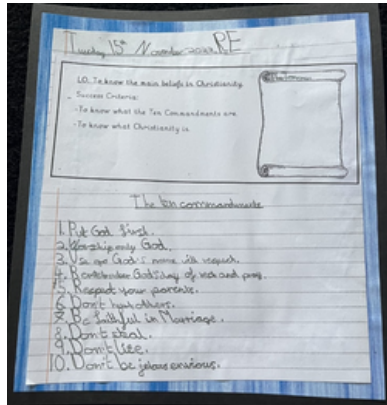 Tuesday 15th November 2022 RE
LO: To know the main beliefs in Christianity.
Success Criteria:
-To know what the Ten Commandments are
-To know what Christianity is.
The ten commandments
1. Put God first.
2. Worship only God.
3. Use God's name with respect.
4. Remember God's day of rest and pray.
5. Respect your parents.
6. Don't hurt others.
7. Be faithful in Marriage.
8. Don't steal.
9. Don't lie.
10. Don't be jelous envious.